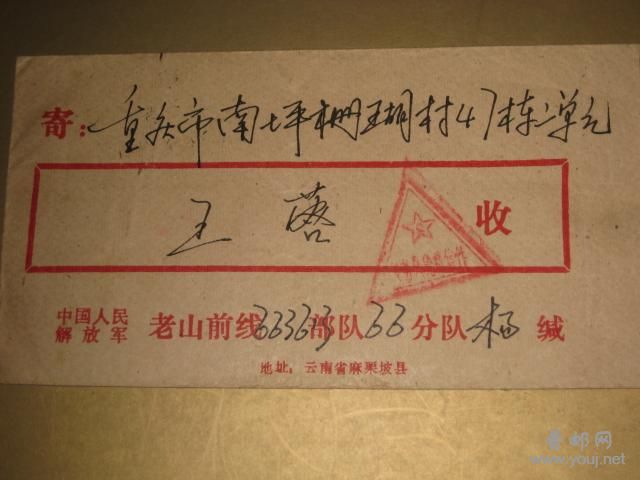 寄：重庆市南坪珊瑚村47栋二单元
王蓉 收
中国人民解放军 老山前线 部队66分队杨缄
地址：云南省麻栗坡县
老邮网
www.youj.net